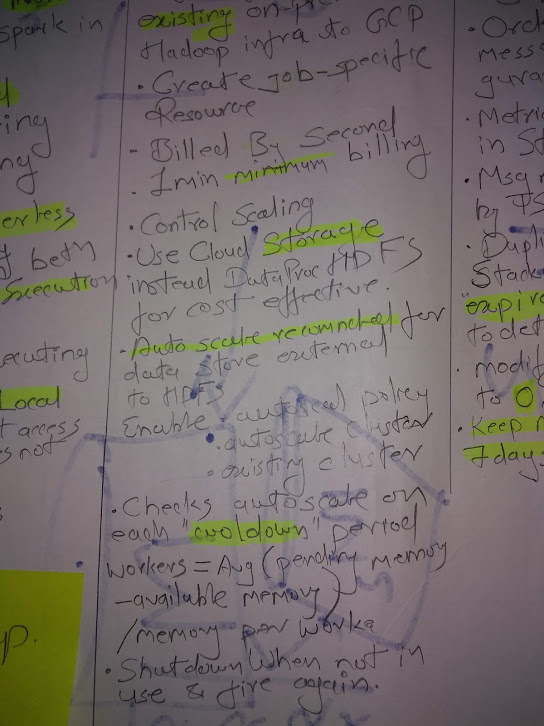 spark in
ing
erless
of both
execution
ecuting
Local
t access
s not
p.
existing on-pre
Hadoop infra to GCP
• Create job-specific
Resource
- Billed By Second
• 1min minimum billing
• Control Scaling
• Use Cloud Storage
instead DataProc HDFS
for cost effective.
• Auto scale recomnded for
data store external
to HDFS
Enable autoscal policy
• autoscale cluster
• existing cluster
• Checks autoscale on
each "cooldown" period
workers = Avg (pending memory
- available memory)
/memory per worke
• Shutdown When not in
use & fire again.
• Orc
mess
gura
• Metric
in St
• Msg
by
• Dupli
Stack
"expire
to det
• modif
to 0
• Keep
7 day